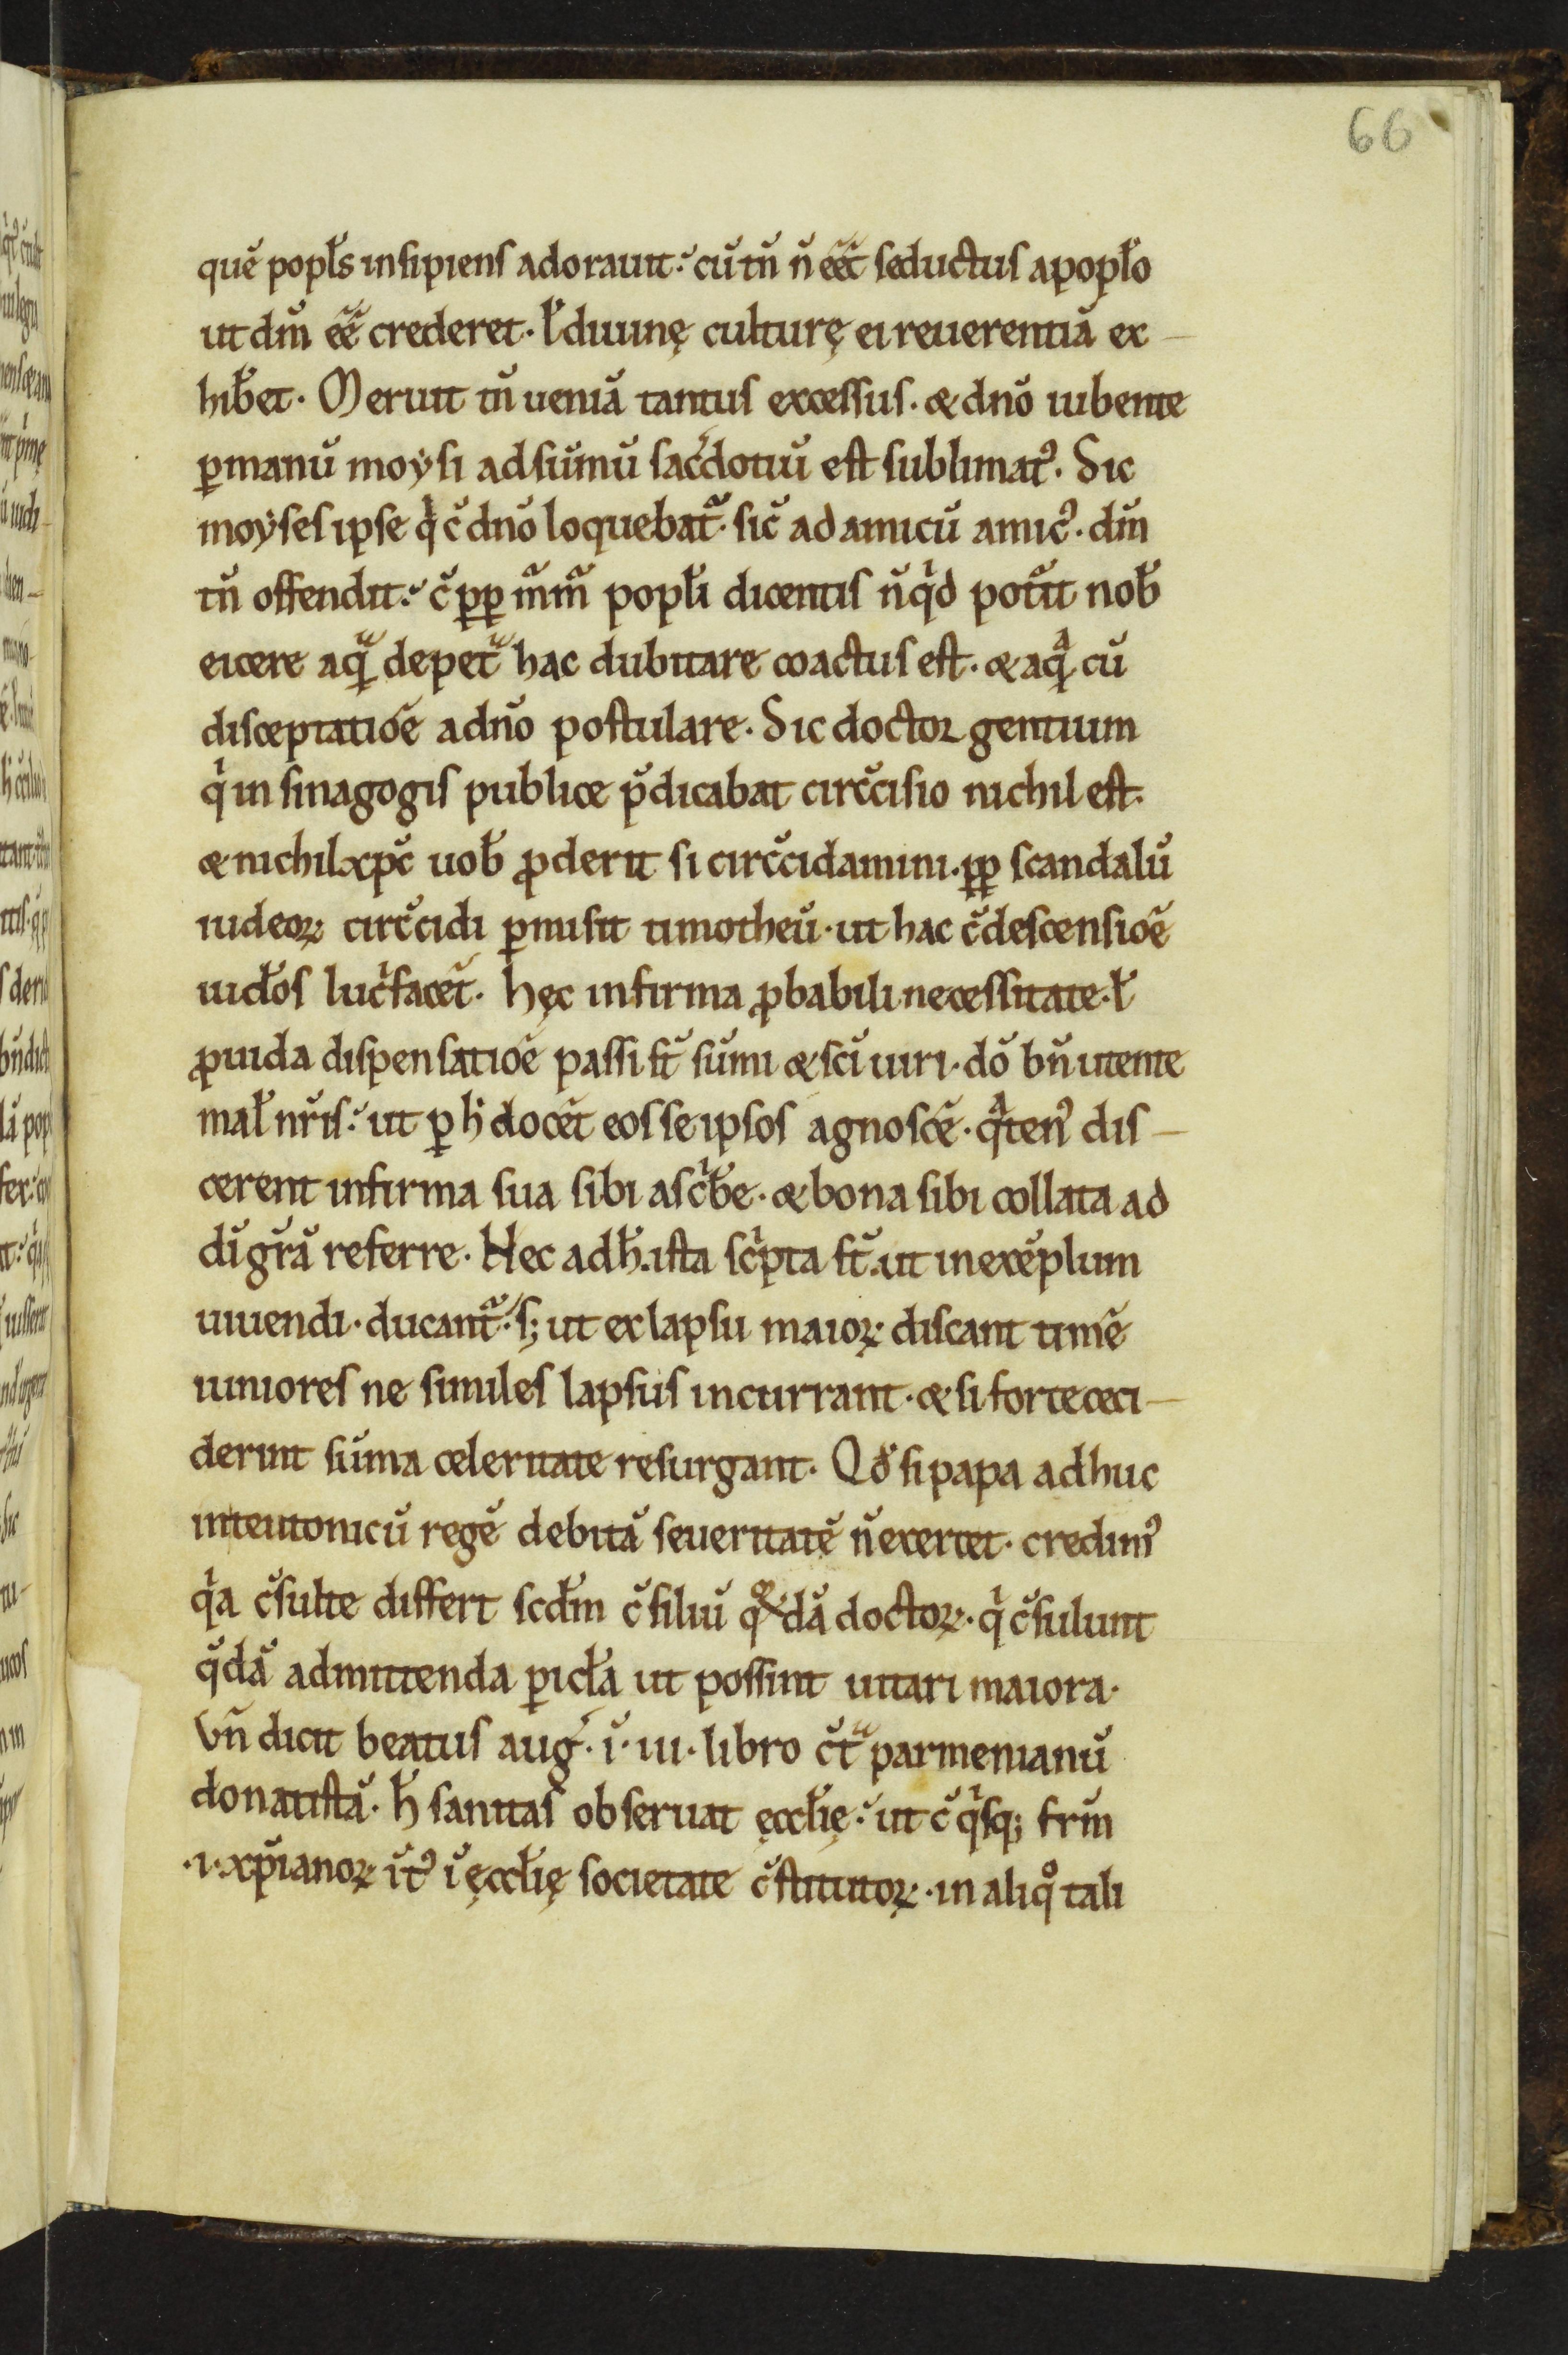 66
quē popl̄s insipiens adorauit. cū tn̄ n̄ eēt seductus apopl̄o
ut dm̄ eē crederet. ł diuinę culturę ei reuerentiā ex
hib̄et. Meruit tn̄ ueniā tantus excessus. & dn̄o iubente
ꝑmanū moysi adsūmū sac̄dotiū est sublimatꝰ. Sic
moyses ipse qͥ c̄ dn̄o loquebatᷣ. sic̄ ad amicū amicꝰ. dm̄
tn̄ offendit. c̄ ꝓꝑ m̄m̄ popl̄i dicentis n̄qͥd potͥit nob̄
eicere aqᷓ depetᷓ hac dubitare coactus est. & aqᷓ cū
disceptatiōē adn̄o postulare. Sic doctor gentium
qͥ in sinagogis publice p̄dicabat circ̄cisio nichil est.
& nichil xp̄c uob̄ ꝓderit si circ̄cidamini. ꝓꝑ scandalū
iudeoꝝ circ̄cidi ꝑmisit timotheū. ut hac c̄descensiōē
iud̄os lucͥfacēt. Hęc infirma ꝓbabili necessitate. ł
ꝓuida dispensatiōē passi st̄ sūmi & sc̄i uiri. dō bn̄ utente
mal̄ nr̄is. ut ꝑ h̄ docēt eos seipsos agnoscē. qᷓtenꝰ dis
cerent infirma sua sibi ascͥb̄e. & bona sibi collata ad
dī gr̄ā referre. Nec adh̄. ista scͥpta st̄. ut inexēplum
uiuendi. ducantᷣ. s; ut ex lapsu maioꝝ discant timē
iuniores ne similes lapsus incurrant. & si forte ceci
derint sūma celeritate resurgant. Qd̄ si papa adhuc
inteutonicū regē debitā seueritatē n̄ exercet. credimꝰ
qͥa c̄sulte differt scd̄m c̄siliū qͦꝝdā doctoꝝ. qͥ c̄sulunt
q̄dā admittenda ꝑicl̄a ut possint uitari maiora.
Vn̄ dicit beatus auḡ. ī. iii. libro c̄tᷓ parmenianū
donatistā. h̄ sanitas obseruat ęccl̄ię. ut c̄ qͥsq; frm̄
.i. xp̄ianoꝝ īt̓ ī ęccl̄ię societate c̄stitutoꝝ. in aliqͦ tali